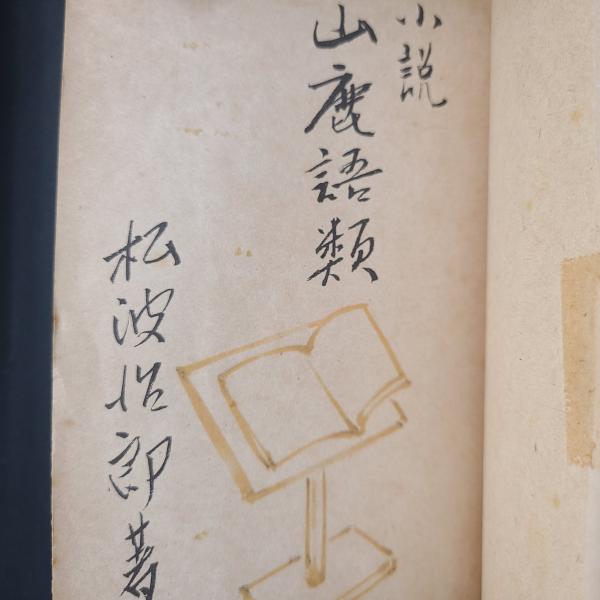 小説
山鹿語類
松波治郎著